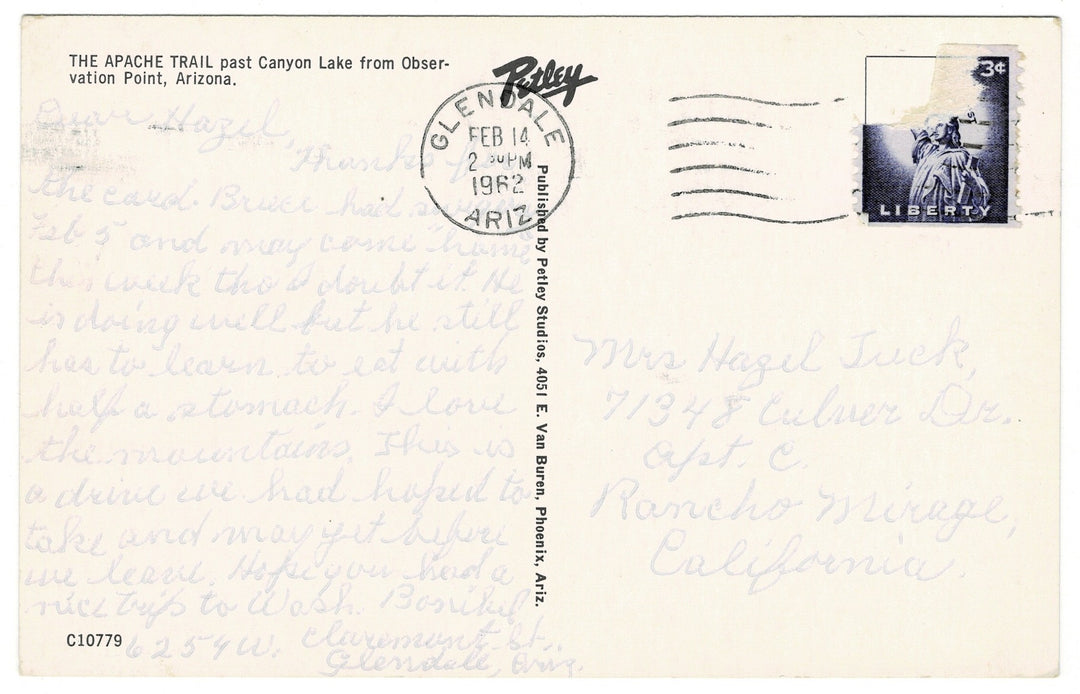 THE APACHE TRAIL past Canyon Lake from Obser-
vation Point, Arizona.
Petley
GLENDALE
FEB 14
2 PM
1962
ARIZ
3¢
LIBERTY
Dear Hazel,
Thanks for
the card. Bruce had surgery
Feb 5 and may come "home"
this week tho I doubt it. He
is doing well but he still
has to learn to eat with
half a stomach. I love
the mountains. This is
a drive we had hoped to
take and may yet before
we leave. Hope you had a
nice trip to Wash.
6254 W. Claremont St.
Glendale, Ariz.
C10779
Published by Petley Studios, 4051 E. Van Buren, Phoenix, Ariz.
Mrs Hazel Tuck,
71348 Culver Dr.
Apt. C.
Rancho Mirage,
California.